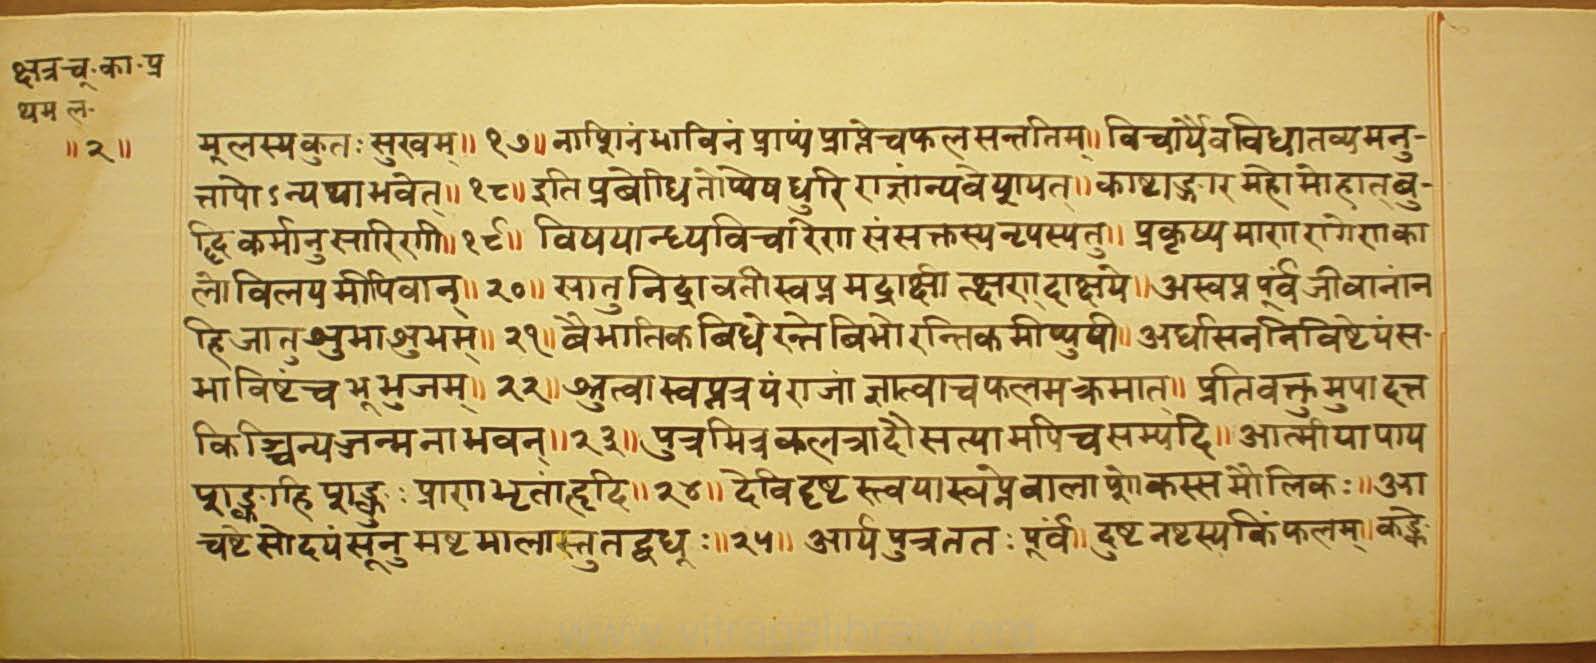 क्षत्रचू·का·प्र
थम ल·
॥२॥
मूलस्य कुतः सुखम्॥१७॥ नाशिनं भाविनं प्राप्यं प्राप्ते च फलसन्ततिम्॥ विचार्यैव विधातव्यमनु-
तापोऽन्यथा भवेत्॥१८॥ इति प्रबोधितोप्येष धुरि राज्ञां न्यवेशयत्॥ काष्टाङ्गारमहो मोहात् बु-
द्धि कर्मानुसारिणी॥१९॥ विषयान्ध्यविचारेण संसक्तस्य नृपस्य तु॥ प्रकृष्यमाण रागेण का
लो विलयमीयिवान्॥२०॥ सा तु निद्रावती स्वप्नमद्राक्षीत्क्षणदाक्षये॥ अस्वप्नपूर्वं जीवानां न
हि जातु शुभाशुभम्॥२१॥ वैभातिकविधेरन्ते विभोरन्तिकमीप्युषी॥ अर्धासननिविष्टेयं स-
भाविष्टं च भूभुजम्॥२२॥ श्रुत्वा स्वप्नत्रयं राजा ज्ञात्वा च फलमक्रमात्॥ प्रतिवक्तुमुपादत्त
किञ्चिन्यञ्जन्मना भवन्॥२३॥ पुत्रमित्रकलत्रादौ सत्यामपि च सम्पदि॥ आत्मीयापाय
शङ्का हि शङ्कुः प्राणभृतां हृदि॥२४॥ देवि दृष्टस्त्वया स्वप्ने बालाशोकस्समौलिकः॥ आ
चष्टे सोदयं सूनुमष्टमालास्तु तद्वधूः॥२५॥ आर्यपुत्र ततः पूर्वं॥ दुष्टनष्टस्य किं फलम्॥ कङ्के-
www.vitragelibrary.org